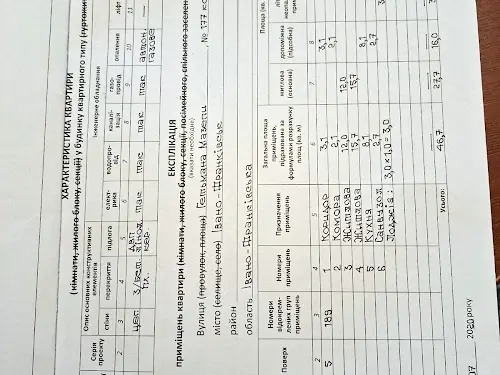 ХАРАКТЕРИСТИКА КВАРТИРИ
(кімнати, жилого блоку, секції) у будинку квартирного типу (гуртожитку
Серія проєкту
Опис основних конструктивних елементів
Інженерне обладнання
стіни
перекриття
підлога
елект-рика
водопро-від
каналі-зація
газо-провід
опалення
ліфт
2 3 4 5 6 7 8 9 10 11
цегл. З/бет. пл. так так так так автон. газове
ЕКСПЛІКАЦІЯ
(вказати необхідне)
приміщень квартири (кімнати, жилого блоку, секції, посімейного, спільного заселен
Вулиця (провулок, площа) Гетьмана Мазепи № 177
місто (селище, село) Івано-Франківськ
район
область Івано-Франківська
Поверх
Номери відокрем-лених груп приміщень
Номери приміщень
Призначення приміщень
Загальна площа приміщень, підрахована за формулами розрахунку площ (кв. м)
Площа (кв.
житлова (основна)
допоміжна (підсобна)
2 3 4 5 6 7 8
5 189 1 Коридор 3,1 3,1
2 Комора 2,1 2,1
3 Житлова 12,0 12,0
4 Житлова 15,7 15,7
5 Кухня 8,1 8,1
6 Санвузол 2,7 2,7
Лоджія: 3,0×1,0=3,0
Усього: 46,7 27,7 16,0
2020 року